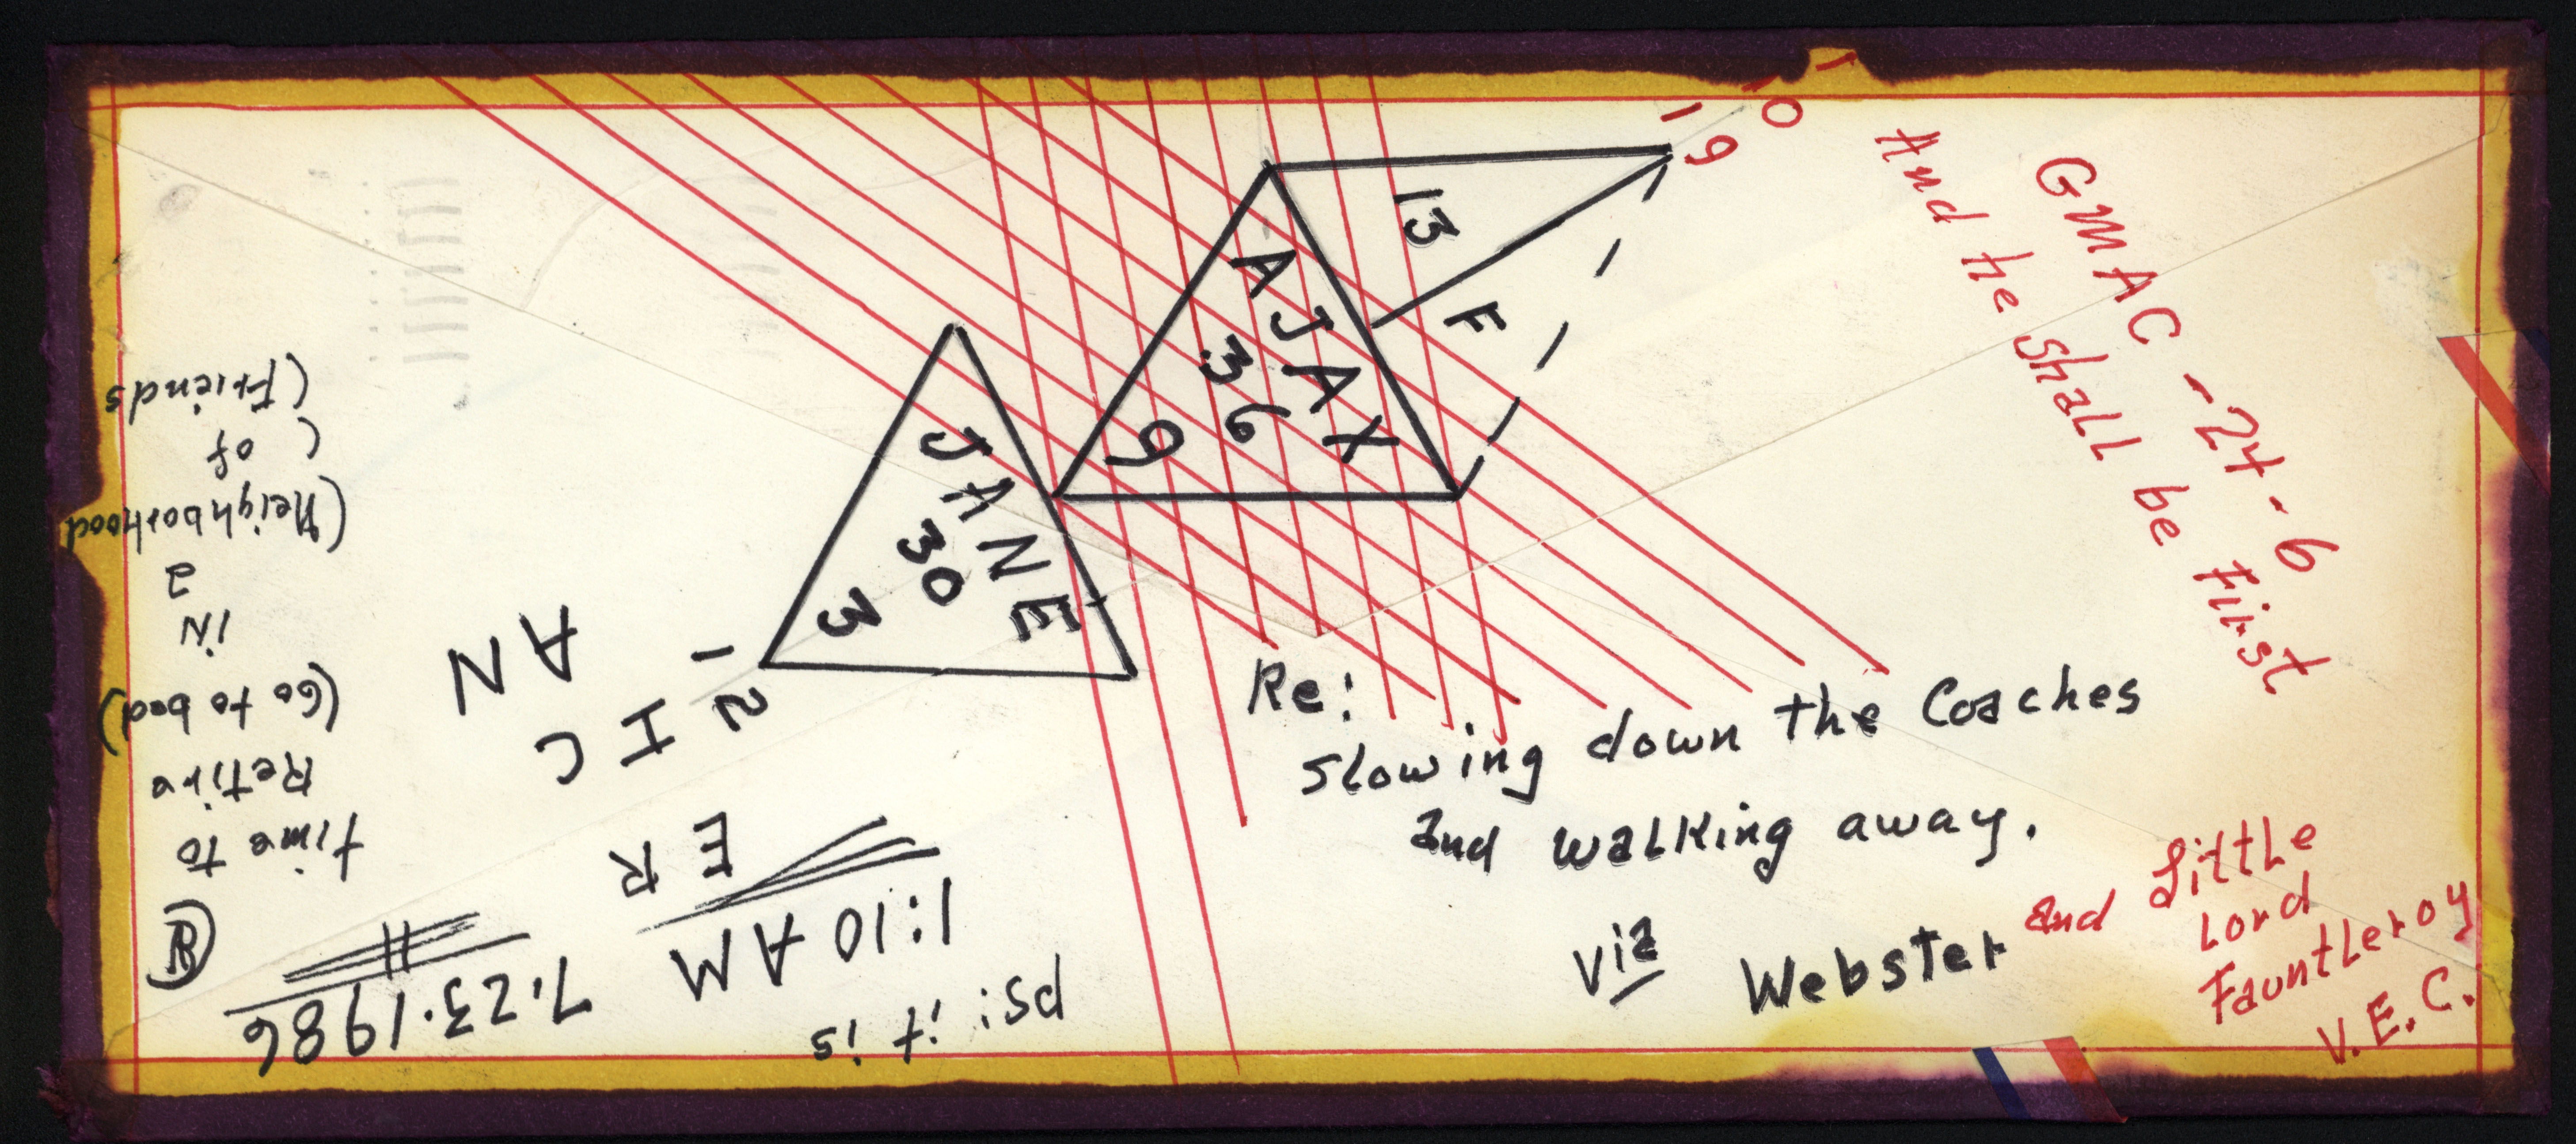 1
10
19
GMAC - 24 - 6
And he shall be First
13
F
AJAX
36
9
JANE
30
3
1
2
Re:
Slowing down the Coaches
and walking away.
via
Webster and Little
Lord
Fauntleroy
V.E.C.
ps: it is
1:10 AM
7.23.1986
time to
Retire
(Go to bed)
IN
a
(Neighborhood
( of
(Friends
R